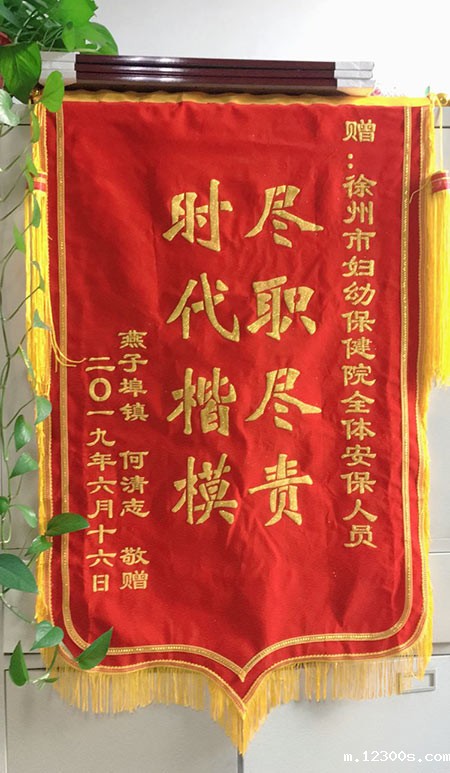 赠:徐州市妇幼保健院全体安保人员
尽职尽责
时代楷模
燕子埠镇 何清志 敬赠
二〇一九年六月十六日
m.12300s.com